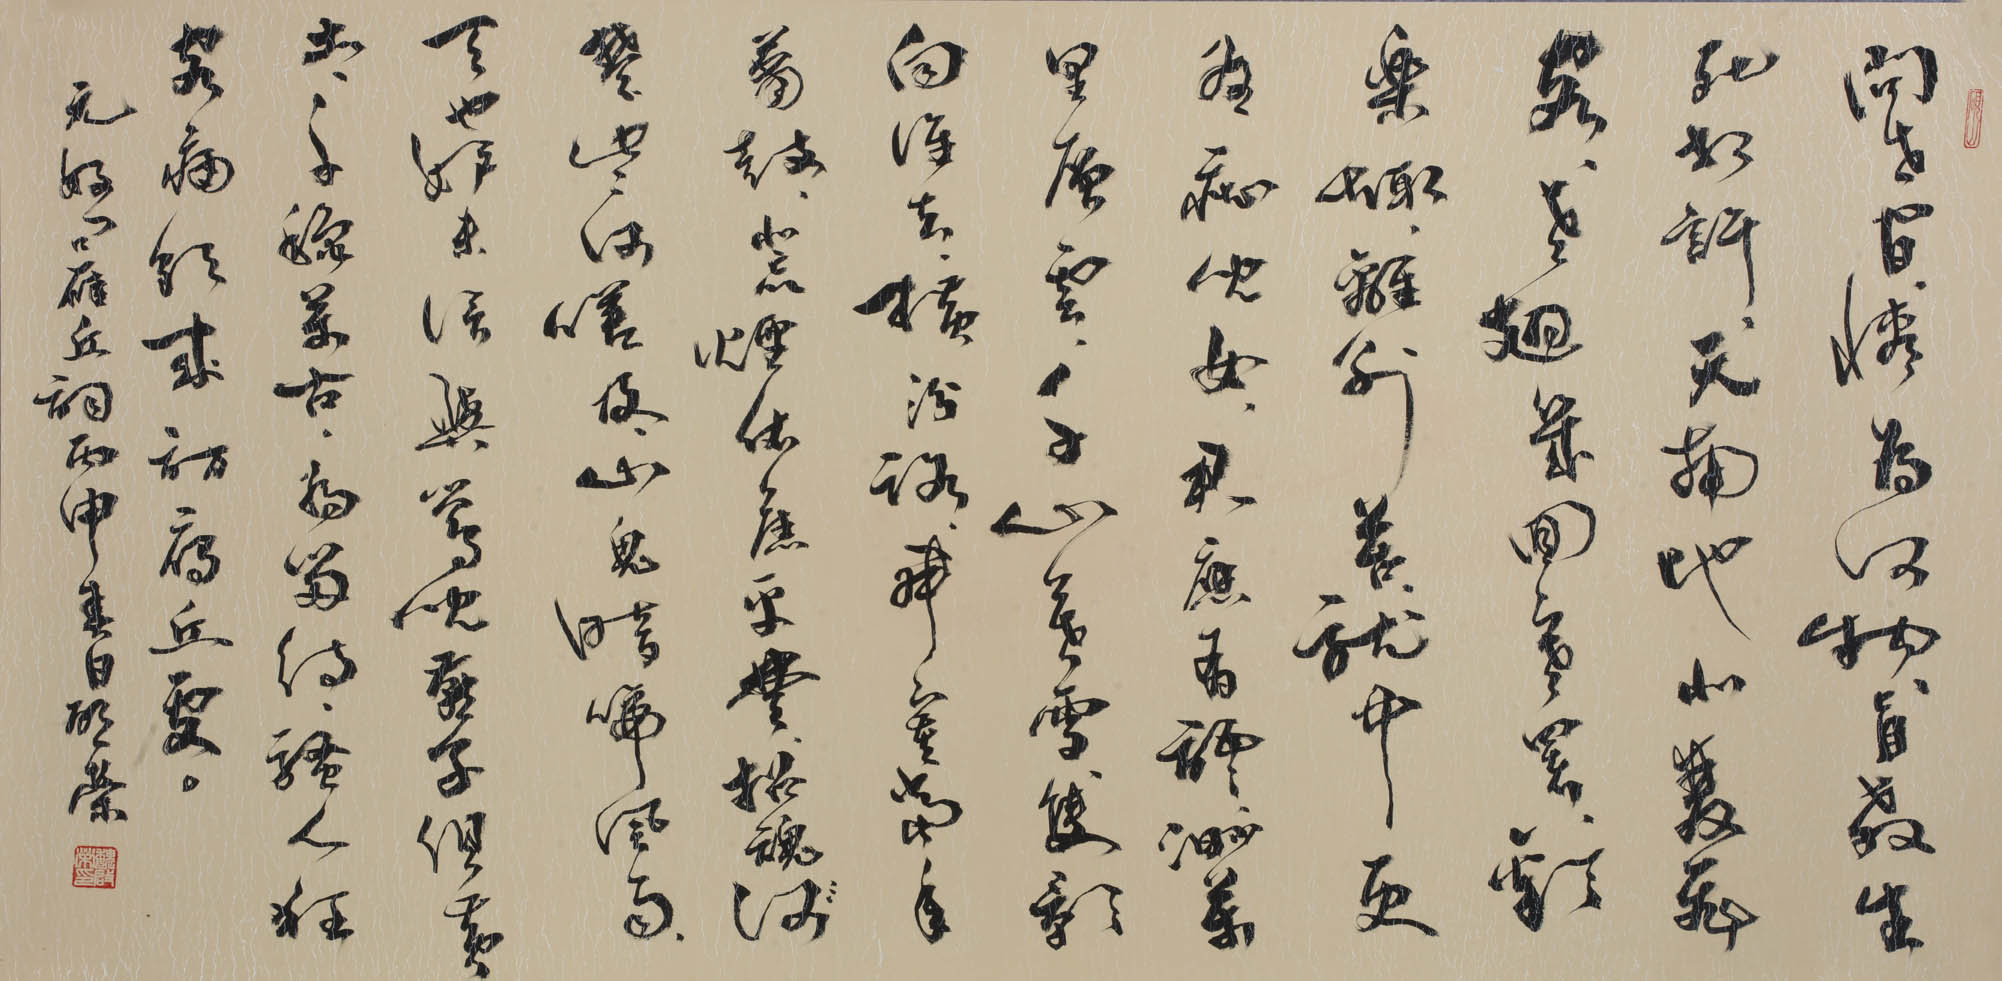 問世間情為何物直教生
死相許天南地北雙飛
客老翅幾回寒暑歡
樂趣離別苦就中更
有癡兒女君應有語渺萬
里層雲千山暮雪隻影
向誰去橫汾路寂寞當年
簫鼓荒煙依舊平楚招魂
楚些何嗟及山鬼暗啼風雨
天也妒未信與鶯兒燕子俱黃
土千秋萬古為留待騷人狂
客痛飲來訪雁丘處。
元好問雁丘詞丙申春日榮